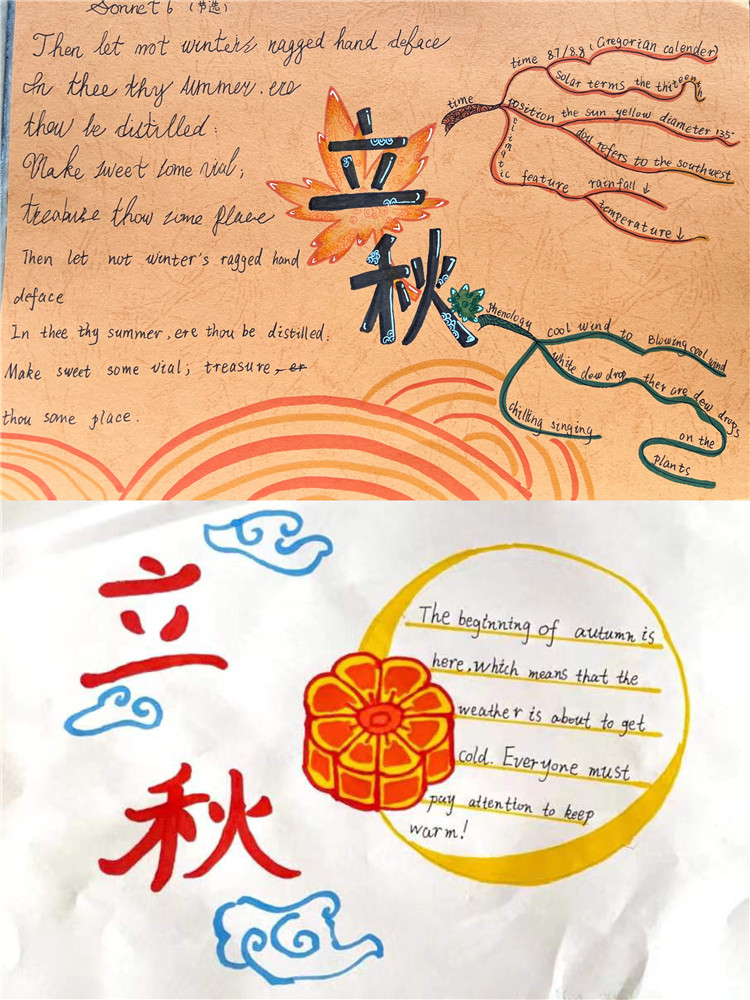 Sonnet 6 (节选)
Then let not winter's ragged hand deface
In thee thy summer. ere
thou be distilled:
Make sweet some vial;
treasure thou some place
Then let not winter's ragged hand
deface
In thee thy summer, ere thou be distilled.
Make sweet some vial; treasure
thou some place.
立
秋
time
time 8.7/8.8 (Gregorian calender)
solar terms the thiteenth
position the sun yellow diameter 135°
day refers to the southwest
climatic feature rainfall ↓
temperature ↓
phenology
cool wind to Blowing cool wind
white dew drop ther are dew drops
on the
plants
chilling singing
立
秋
The beginning of autumn is
here, which means that the
weather is about to get
cold. Everyone must
pay attention to keep
warm!